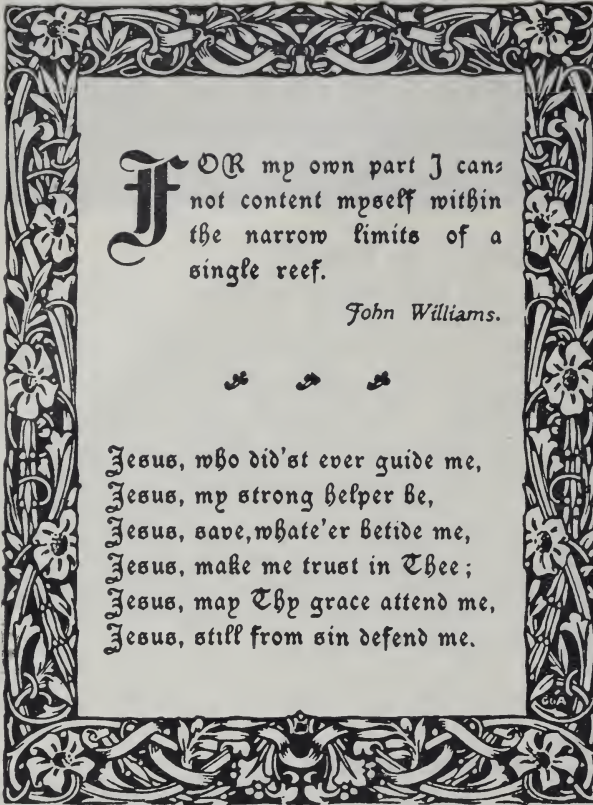 FOR my own part I can-
not content myself within
the narrow limits of a
single reef.
John Williams.
Jesus, who did'st ever guide me,
Jesus, my strong helper be,
Jesus, save, whate'er betide me,
Jesus, make me trust in Thee;
Jesus, may Thy grace attend me,
Jesus, still from sin defend me.